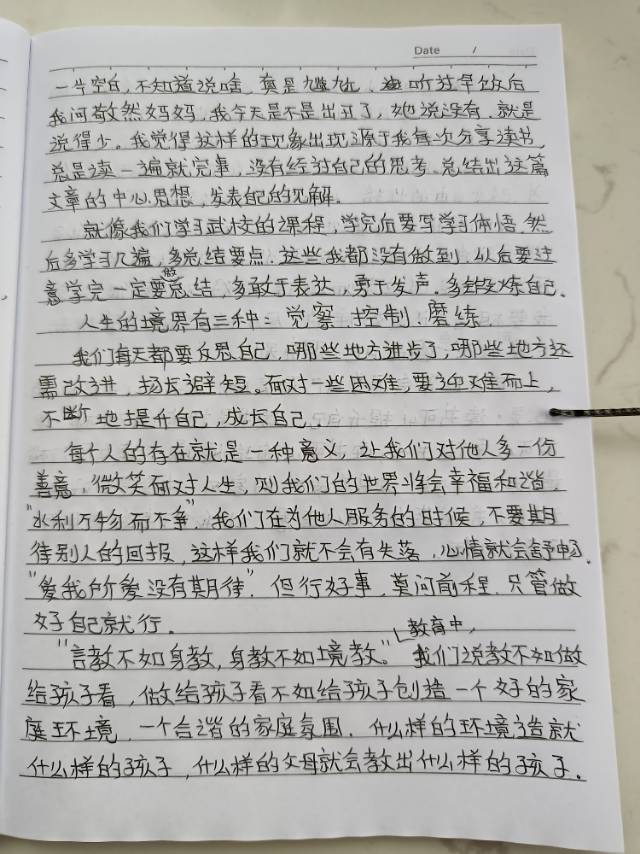 Date /
一片空白,不知道说啥,真是尴尬、听过早饭后
我问敬然妈妈,我今天是不是出丑了,她说没有,就是
说得少。我觉得这样的现象出现源于我每次分享读书,
总是读一遍就完事,没有经过自己的思考,总结出这篇
文章的中心思想,发表自己的见解。
就像我们学习武校的课程,学完后要写学习体悟,然
后多学习几遍,多总结要点,这些我都没有做到,从后要注
意学完一定要做总结,多敢于表达,勇于发声,多锻炼自己。
人生的境界有三种:觉察、控制、磨练
我们每天都要反思自己,哪些地方进步了,哪些地方还
需改进,扬长避短。面对一些困难,要迎难而上,
不断地提升自己,成长自己。
每个人的存在就是一种意义,让我们对他人多一份
善意,微笑面对人生,则我们的世界将会幸福和谐,
“水利万物而不争”,我们在为他人服务的时候,不要期
待别人的回报,这样我们就不会有失落,心情就会舒畅。
“爱我所爱没有期待”,但行好事,莫问前程,只管做
好自己就行。
“言教不如身教,身教不如境教。”教育中,我们说教不如做
给孩子看,做给孩子看不如给孩子创造一个好的家
庭环境,一个合谐的家庭氛围,什么样的环境造就
什么样的孩子,什么样的父母就会教出什么样的孩子。